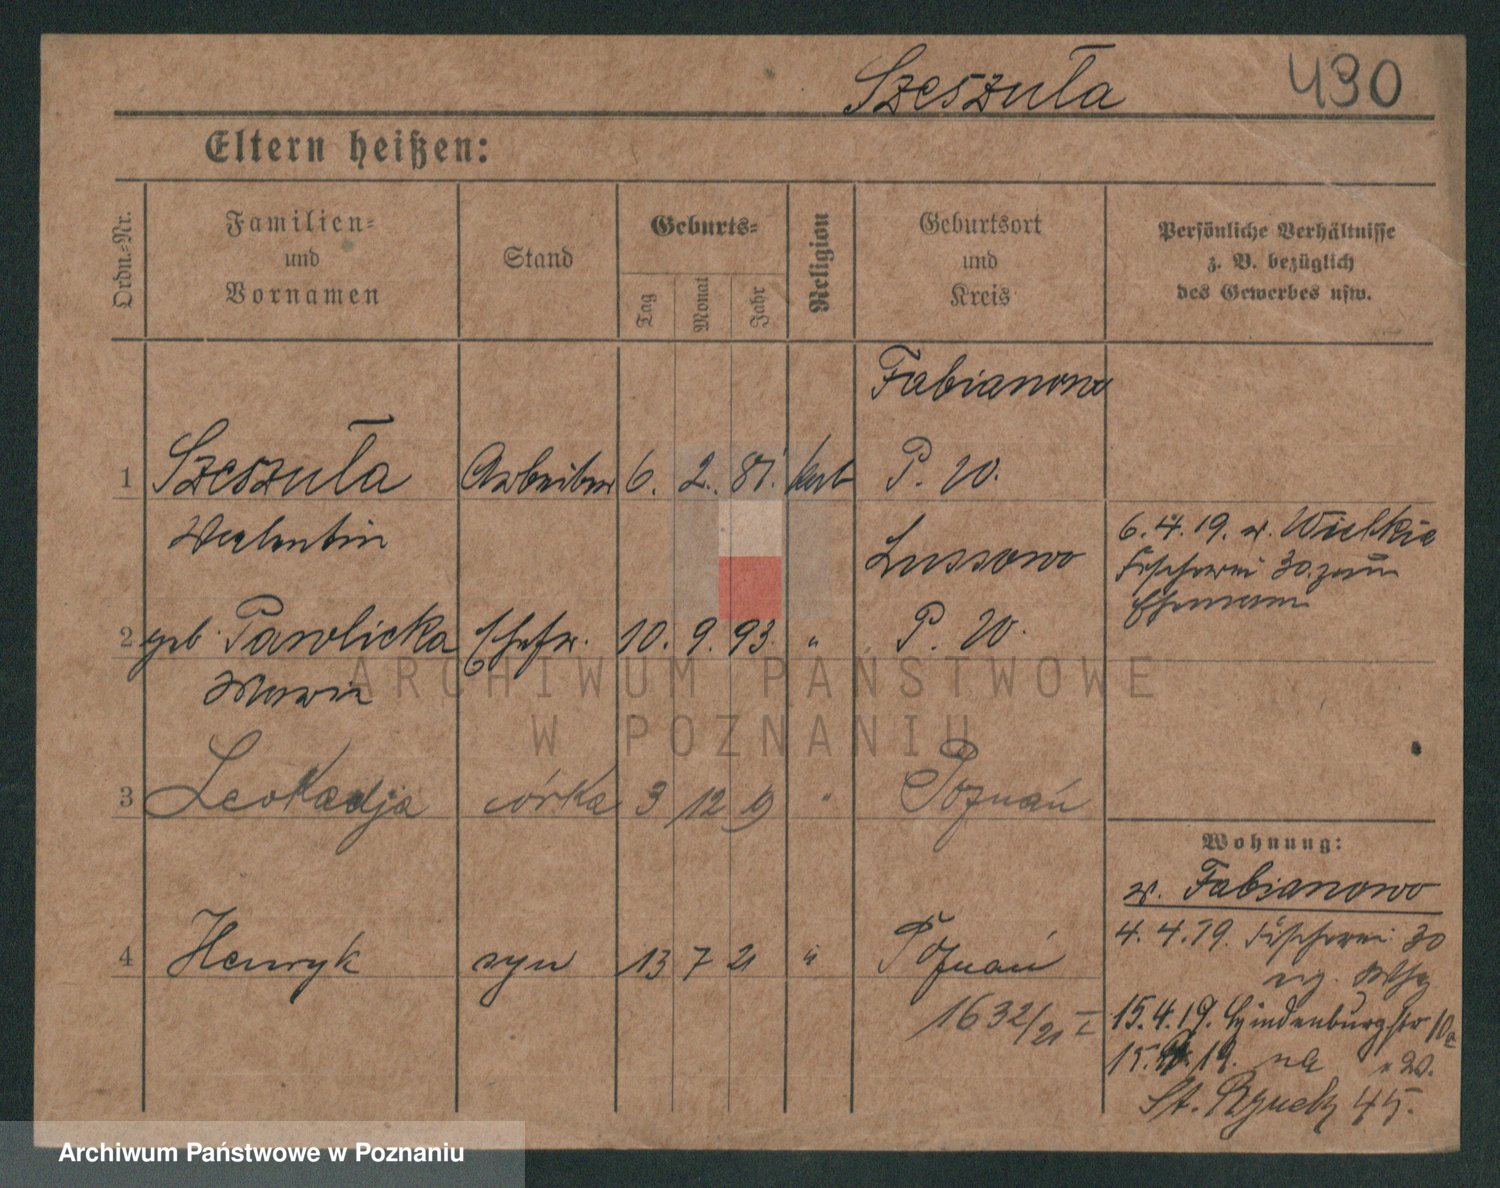 Szeszuła 430
Eltern heißen:
Ordn.-Nr.
Familien-
und
Vornamen
Stand
Geburts-
Tag
Monat
Jahr
Religion
Geburtsort
und
Kreis
Persönliche Verhältnisse
z. B. bezüglich
des Gewerbes usw.
Fabianowo
1 Szeszuła Arbeiter 6. 2. 87. kath P. W.
Valentin
Lussowo
6. 4. 19. v. Wielkie
Fischerei 30 zum
Ehemann
2 geb. Pawlicka Ehefr. 10. 9. 93. " P. W.
Maria
3 Leokadja córka 3 12 19 " Poznań
Wohnung:
v. Fabianowo
4. 4. 19. Fischerei 30
4 Henryk syn 13 7 21 " Poznań
1632/21 I
15. 4. 19. Hindenburgstr 10a
15. 19. na
St. Rynek 45.
ARCHIWUM PAŃSTWOWE
W POZNANIU
Archiwum Państwowe w Poznaniu